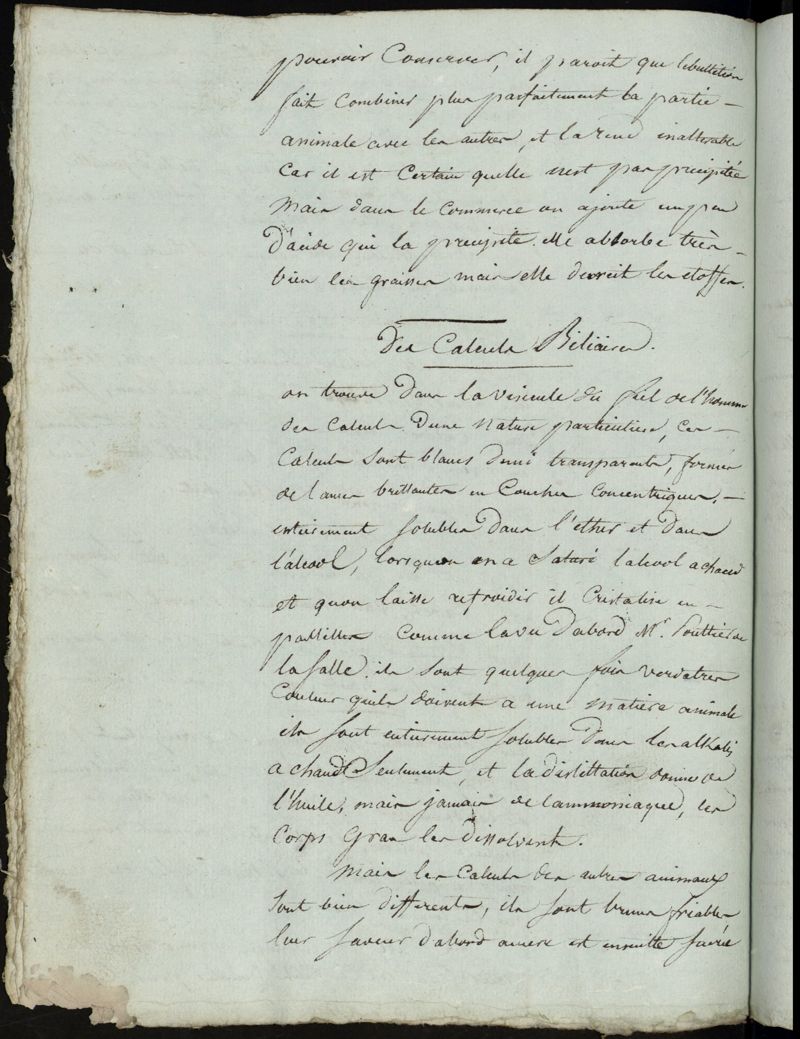 pouvoir Conserver, il paroit que lebullition
fait Combiner plus parfaitement la partie -
animale avec les autres, et la rend inalterable
Car il est Certain quelle nest pas precipitée
Mais dans le Commerce on ajoute un peu
D'acide qui la precipite. elle absorbe très -
bien les graisses mais elle devroit les etoffes.
Des Calculs Biliaires.
on trouve Dans la vesicule du fiel de l'homme
des Calculs Dune nature particuliere, Ces -
Calculs sont blancs demi transparents, formés
de lames brillantes en Couches Concentriques, -
entierement solubles Dans l'ether et Dans
l'alcool, lorsquon en a Saturé lalcool a chaud
et quon laisse refroidir il Cristalise en -
paillettes Comme la vu Dabord Mr. Poultier de
la Salle. ils sont quelques fois verdatres
Couleur quils doivent a une matiere animale
ils sont entierement solubles Dans les alkalis
a chaud Seulement, et la distillation donne de
l'huile, mais jamais de lammoniaque, les
Corps Gras les dissolvent.
Mais les Calculs des autres animaux
sont bien differents, ils sont bruns friables
leur saveur d'abord amere est ensuitte sucrée